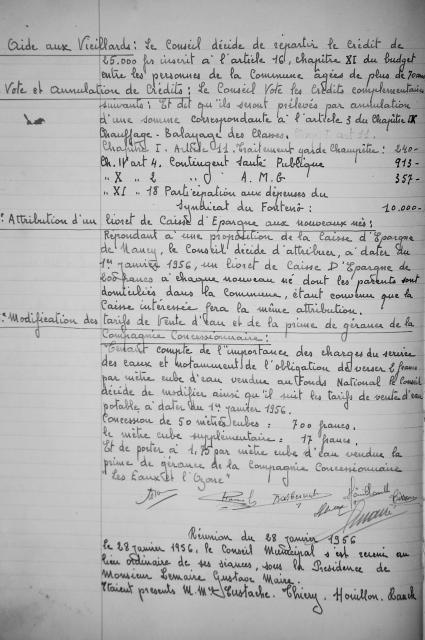 Aide aux Vieillards: Le Conseil décide de répartir le Crédit de
25.000 frs inscrit à l'article 16, chapitre XI du budget
entre les personnes de la Commune âgées de plus de 70 ans
Vote et annulation de Crédits: Le Conseil Vote les Crédits complémentaires
suivants: Et dit qu'ils seront prélevés par annulation
d'une somme correspondante à l'article 3 du Chapitre IX
Chauffage - Balayage des Classes.
Chapitre I. Article 11. Traitement garde Champêtre: 240-
Ch. IV art 4. Contingent Santé Publique 913-
" X " 2 " " A.M.G 357-
" XI " 18 Participation aux dépenses du
Syndicat du Fonteno: 10.000-
Attribution d'un livret de Caisse d'Epargne aux nouveaux nés:
Répondant à une proposition de la Caisse d'Epargne
de Nancy, le Conseil décide d'attribuer, à dater du
1er janvier 1956, un livret de Caisse D'Epargne de
200 francs à chaque nouveau né dont les parents sont
domiciliés dans la commune, étant convenu que la
Caisse intéressée fera la même attribution.
Modification des tarifs de Vente d'eau et de la prime de gérance de la
Compagnie Concessionnaire:
Tenant compte de l'importance des charges du service
des eaux et notamment de l'obligation de verser 2 francs
par mètre cube d'eau vendue au Fonds National le Conseil
décide de modifier ainsi qu'il suit les tarifs de vente d'eau
potable, à dater du 1er janvier 1956.
Concession de 50 mètres cubes: 700 francs.
le mètre cube supplémentaire: 17 francs.
Et de porter à 1,75 par mètre cube d'eau vendue la
prime de gérance de la Compagnie Concessionnaire
"Les Eaux et l'Ozone"
Réunion du 28 janvier 1956
Le 28 janvier 1956, le Conseil Municipal s'est réuni au
lieu ordinaire de ses séances, sous la Présidence de
Monsieur Lemaire Gustave Maire.
Etaient présents M.M. Eustache. Thiery. Houillon. Banck